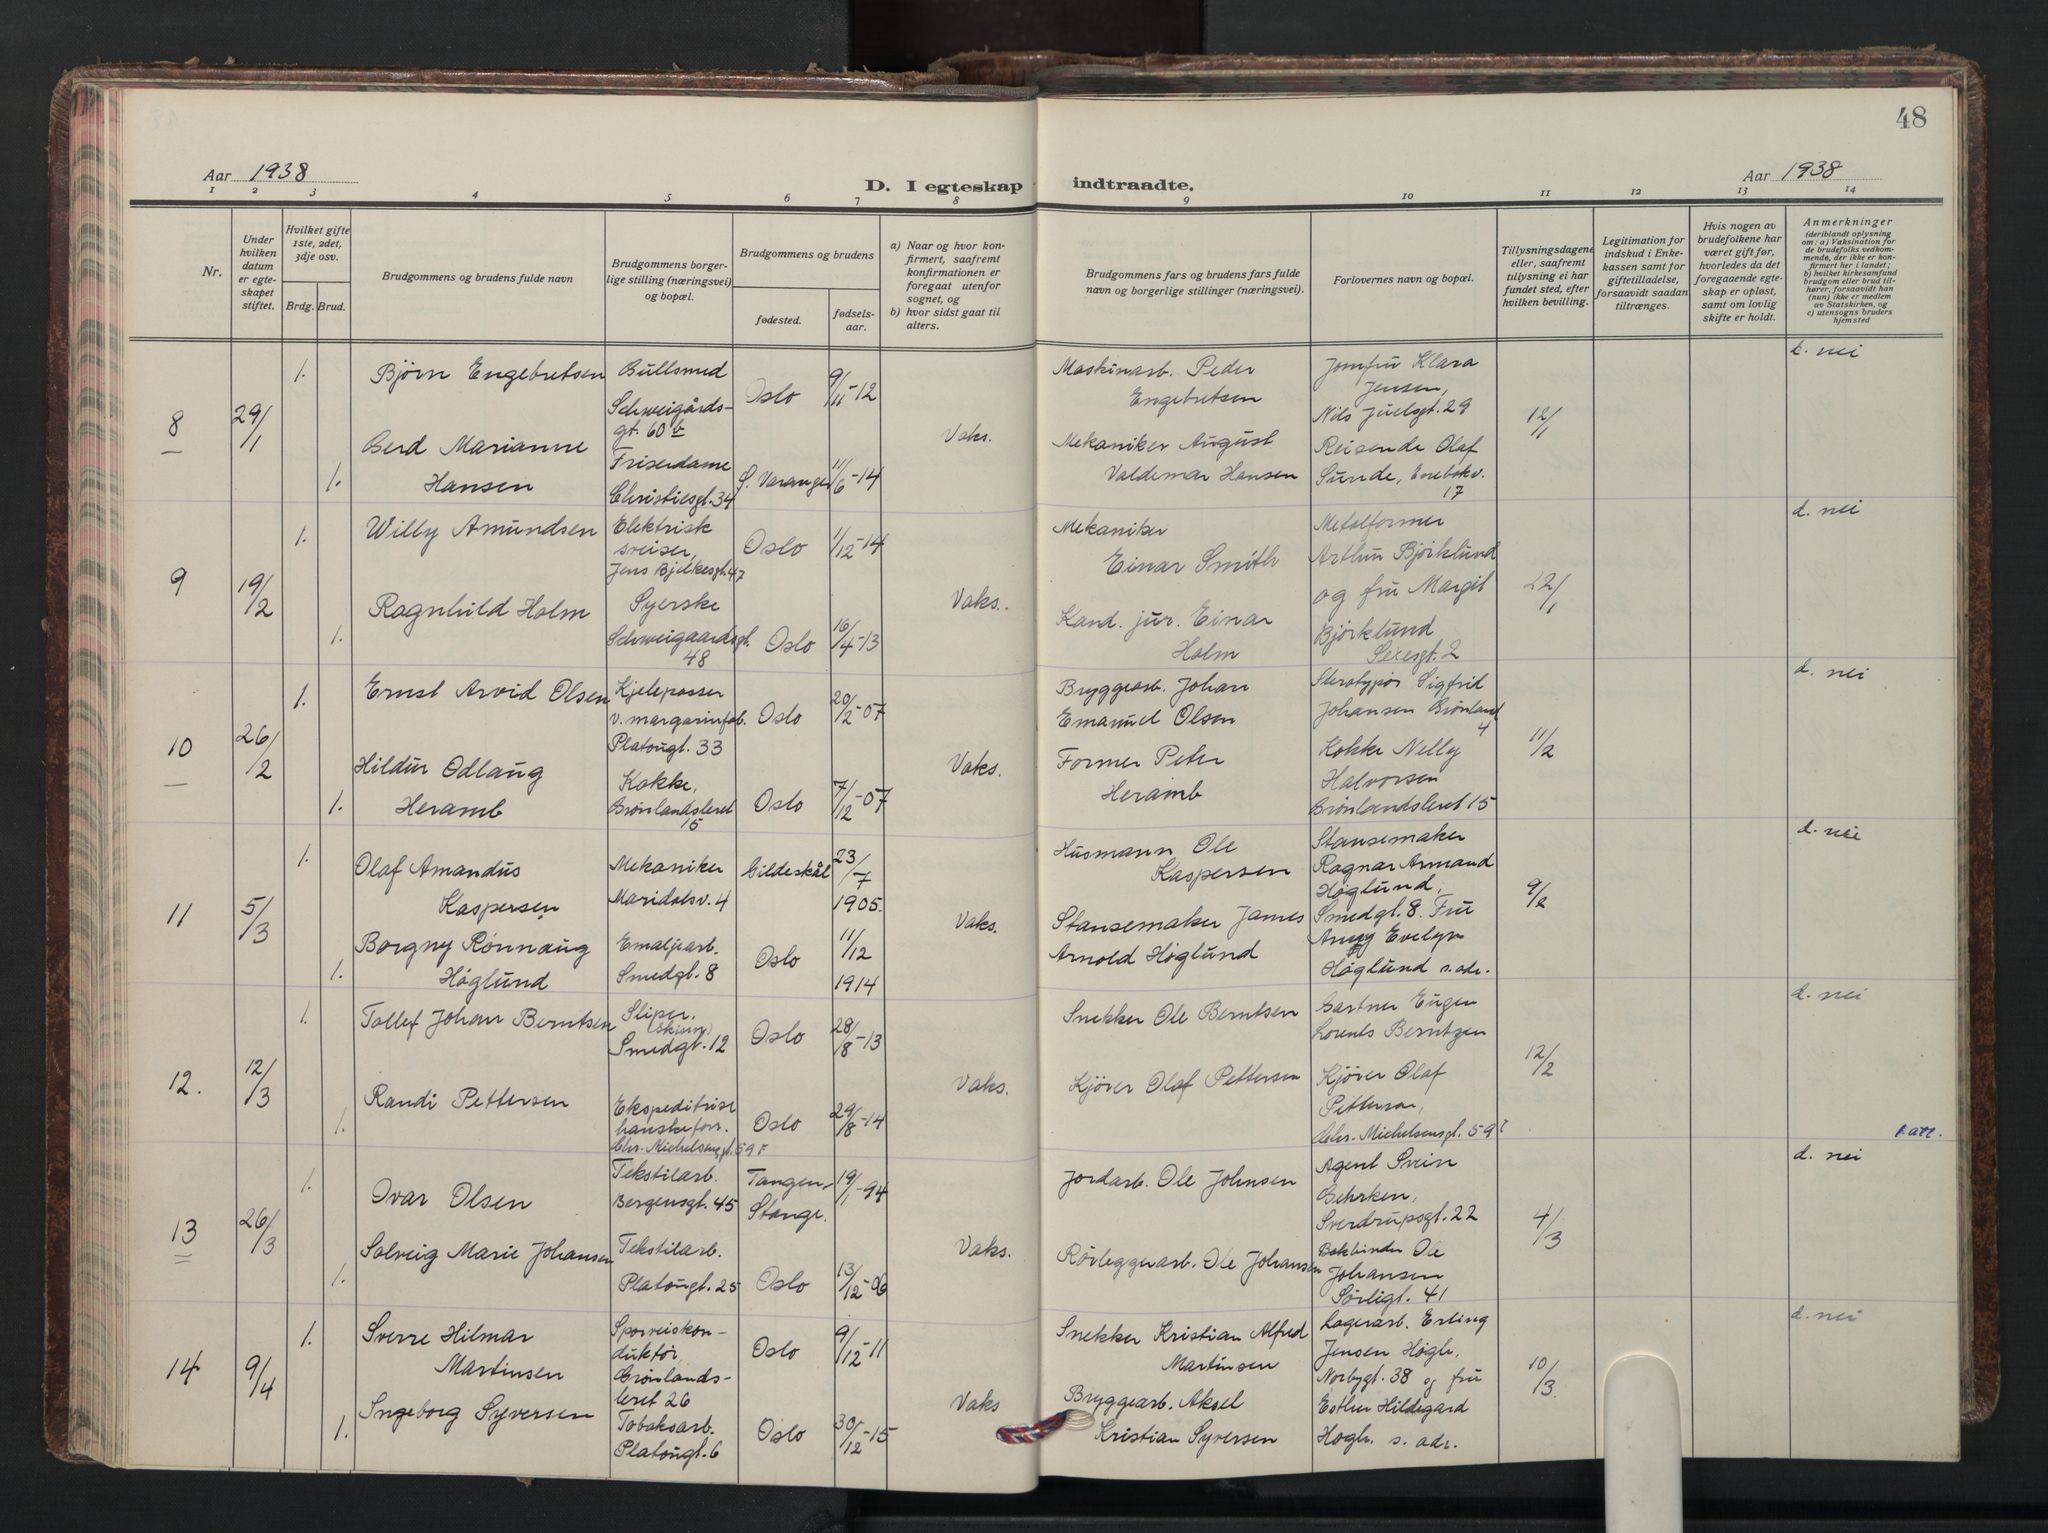 48
Aar 1938
D. I egteskap indtraadte.
Aar 1938
1 2 3 4 5 6 7 8 9 10 11 12 13 14
Nr.
Under hvilken datum er egteskapet stiftet.
Hvilket gifte 1ste, 2det, 3dje osv.
Brdg. Brud.
Brudgommens og brudens fulde navn
Brudgommens borgerlige stilling (næringsvei) og bopæl.
Brudgommens og brudens
fødested.
fødselsaar.
a) Naar og hvor konfirmert, saafremt konfirmationen er foregaat utenfor sognet, og
b) hvor sidst gaat til alters.
Brudgommens fars og brudens fars fulde navn og borgerlige stillinger (næringsvei).
Forlovernes navn og bopæl.
Tillysningsdagene eller, saafremt tillysning ei har fundet sted, efter hvilken bevilling.
Legitimation for indskud i Enkekassen samt for giftetilladelse, forsaavidt saadan tiltrænges.
Hvis nogen av brudefolkene har været gift før, hvorledes da det foregaaende egteskap er opløst, samt om lovlig skifte er holdt.
Anmerkninger
(deriblandt oplysning om: a) Vaksination for de brudefolks vedkommende, der ikke er konfirmert her i landet; b) hvilket kirkesamfund brudgom eller brud tilhører, forsaavidt han (hun) ikke er medlem av Statskirken, og c) utensogns bruders hjemsted
8
29/1
1.
Bjørn Engebretsen
Gullsmed
Schweigårds-
gt. 60 b
Oslo
9/11-12
Maskinarb. Peder
Engebretsen
Jomfru Klara
Jensen,
Nils Juelsgt. 29
12/1
d. nei
1.
Gerd Marianne
Hansen
Friserdame
Christiesgt. 34
S. Varanger
11/6-14
Vaks.
Mekaniker August
Valdemar Hansen
Reisende Olaf
Sunde, Enebakv.
17
9
19/2
1.
Willy Amundsen
Elektrisk
sveiser,
Jens Bjelkesgt. 47
Oslo
1/12-14
Mekaniker
Einar Smith
Metalformer
Arthur Bjørklund
og fru Margit
Bjørklund
22/1
d. nei
1.
Ragnhild Holm
Syerske
Schweigaardsgt.
48
Oslo
16/4-13
Vaks.
Kand. jur. Einar
Holm
10
26/2
1.
Ernst Arvid Olsen
Kjelepasser
v. margarinfab.
Platougt. 33
Oslo
20/2-07
Bryggearb. Johan
Emanuel Olsen
Sterotypør Sigfrid
Johansen Grønland
4
11/2
d. nei
1.
Hildur Odlaug
Heramb
Kokke,
Grønlandsleret
15
Oslo
7/12-07
Vaks.
Former Peter
Heramb
Kokke Nelly
Halvorsen
Grønlandsleret 15
11
5/3
1.
Olaf Amandus
Kaspersen
Mekaniker
Maridalsv. 4
Gildeskål
23/7
1905.
Husmann Ole
Kaspersen
Stansemaker
Ragnar Armand
Høglund,
Smedgt. 8. Fru
9/2
d. nei
1.
Borgny Rønnaug
Høglund
Emaljearb.
Smedgt. 8
Oslo
11/12
1914
Vaks.
Stansemaker James
Arnold Høglund
Evelyn
Høglund s. adr.
12.
12/3
1.
Tollef Johan Berntsen
Sliper,
Smedgt. 12
Oslo
28/8-13
Snekker Ole Berntsen
Gartner Eugen
Lorents Berntzen
12/2
d. nei
1.
Randi Pettersen
Ekspeditrise
hanskeforr.
Chr. Michelsensgt. 59 F
Oslo
29/8-14
Vaks.
Kjører Olaf Pettersen
Kjører Olaf
Pettersen,
Chr. Michelsensgt. 59 F
13
26/3
1.
Ovar Olsen
Tekstilarb.
Bergensgt. 45
Tangen,
Stange.
19/1-94
Jordarb. Ole Johnsen
Agent Svein
Gehrken,
Sverdrupsgt. 22
4/3
d. nei
1.
Solveig Marie Johansen
Tekstilarb.
Platougt. 25
Oslo
13/12-06
Vaks.
Rørleggerarb. Ole Johansen
Bokbinder Ole
Johansen
Sørligt. 41
14
9/4
1.
Sverre Hilmar
Martinsen
Sporveiskon-
duktør,
Grønlands-
leret 26
Oslo
9/12-11
Snekker Kristian Alfred
Martinsen
Lagerarb. Erling
Jensen Høgh,
Norbygt. 38 og fru
10/3.
d. nei
1.
Ingeborg Syversen
Tobaksarb.
Platougt. 6
Oslo
30/12-15
Vaks
Bryggearb. Aksel
Kristian Syversen
Esther Hildegard
Høgh. s. adr.